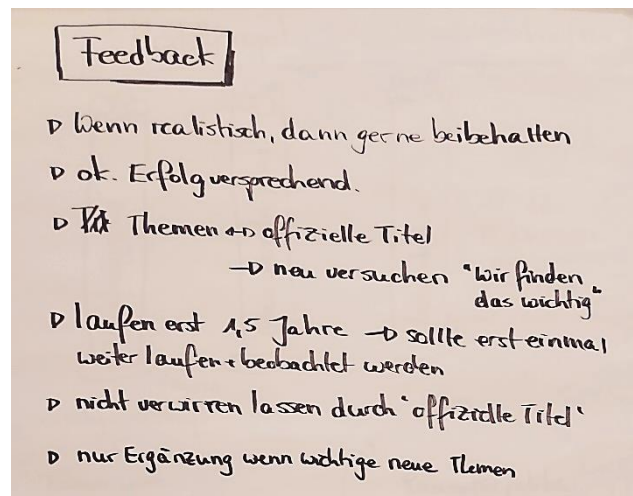 Feedback
▷ Wenn realistisch, dann gerne beibehalten
▷ ok. Erfolgversprechend.
▷ Themen ↔ offizielle Titel
→ neu versuchen "wir finden
das wichtig"
▷ laufen erst 1,5 Jahre → sollte erst einmal
weiter laufen + beobachtet werden
▷ nicht verwirren lassen durch "offizielle Titel"
▷ nur Ergänzung wenn wichtige neue Themen